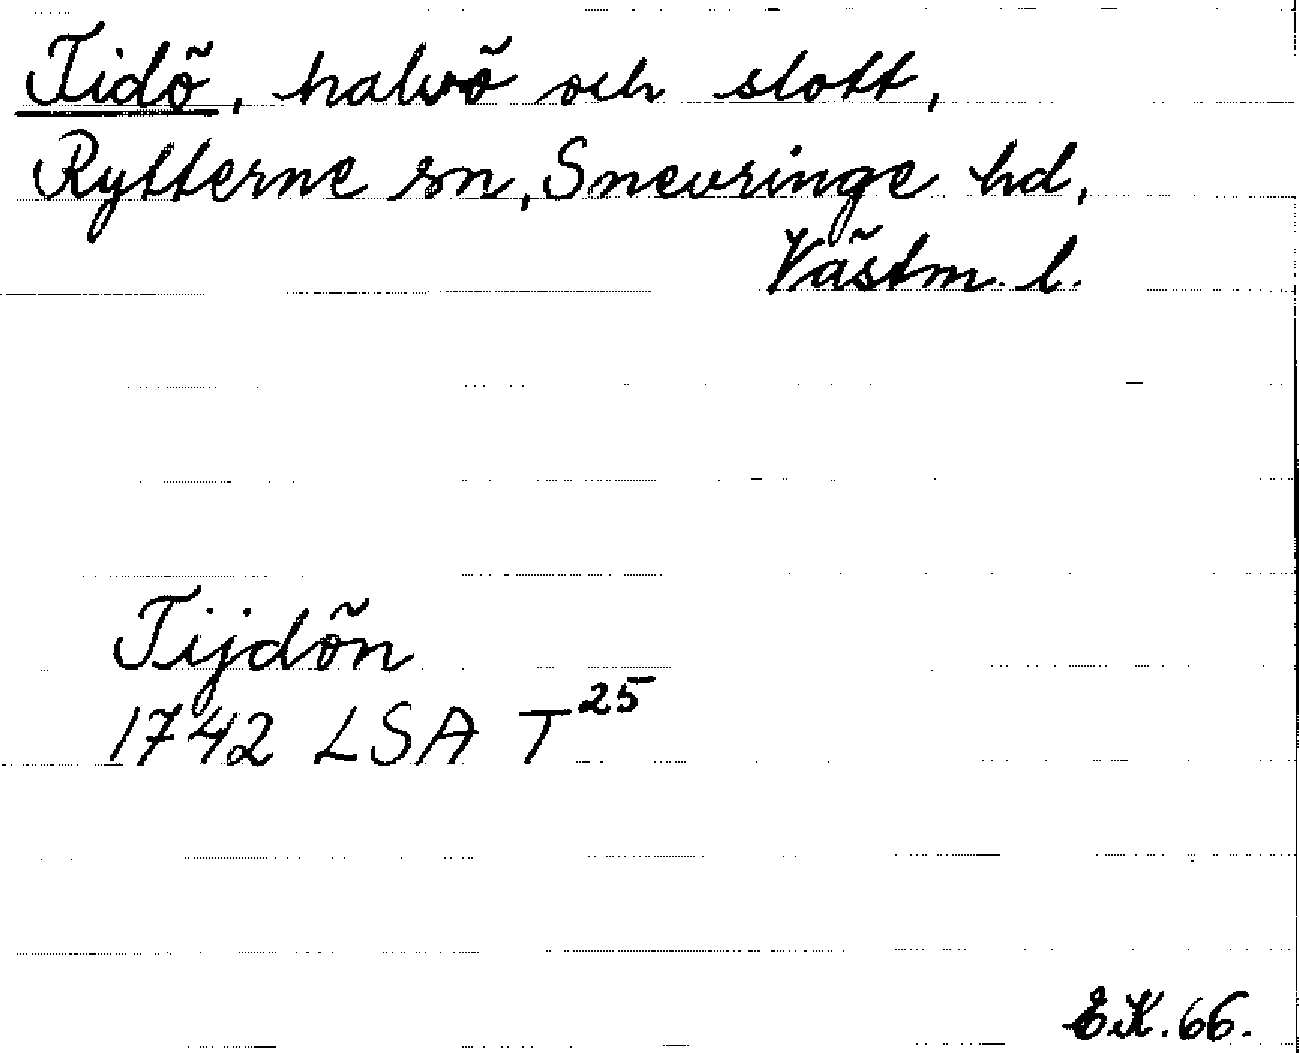 Tidö, halvö och slott,
Rytterne sn, Snevringe hd,
Västm. l.
Tijdön
1742 LSA T25
E.K. 66.